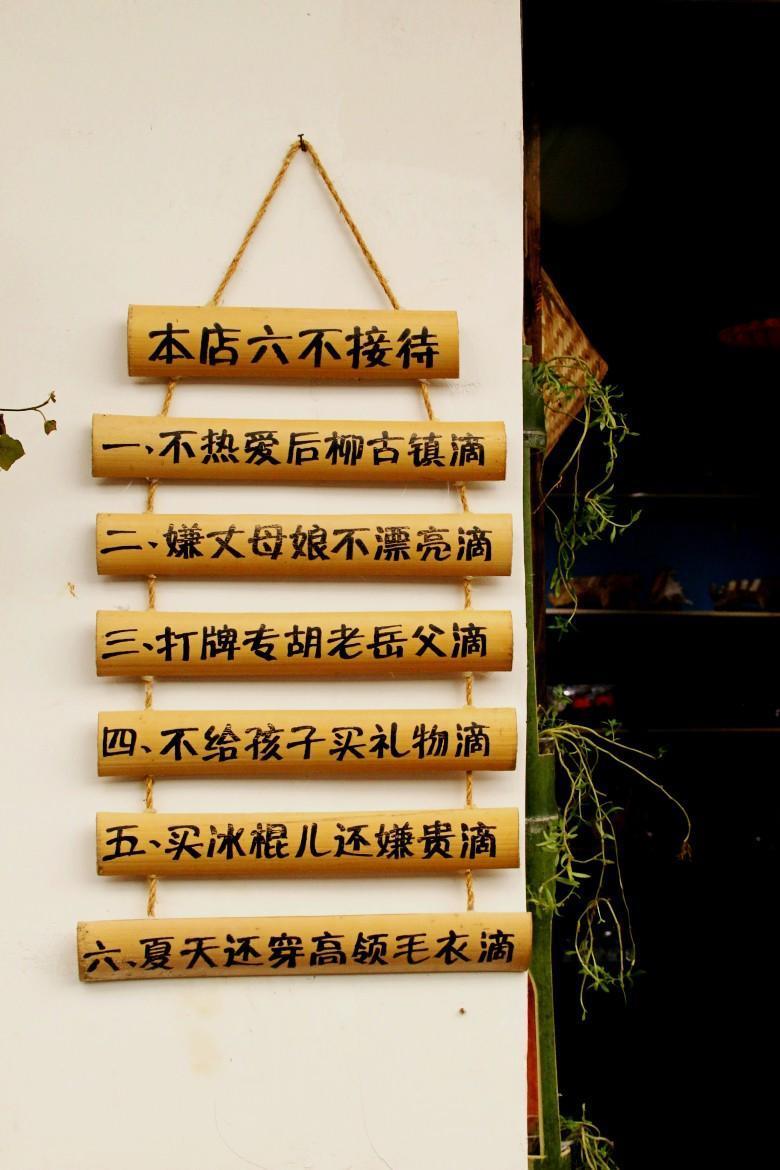 本店六不接待
一、不热爱后柳古镇滴
二、嫌丈母娘不漂亮滴
三、打牌专胡老岳父滴
四、不给孩子买礼物滴
五、买冰棍儿还嫌贵滴
六、夏天还穿高领毛衣滴